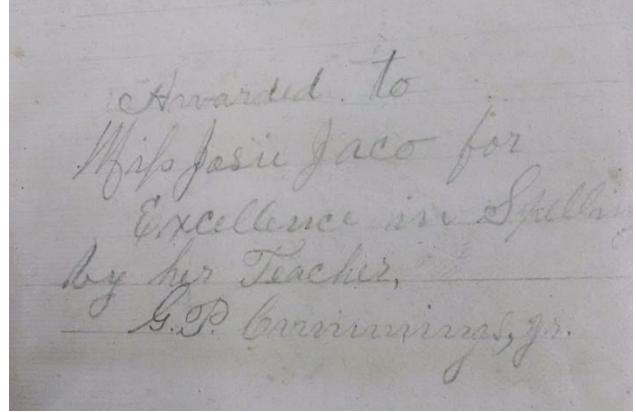 Awarded to
Miss Josie Jaco for
Excellence in Spellin
by her Teacher,
G.P. Cummings, Jr.